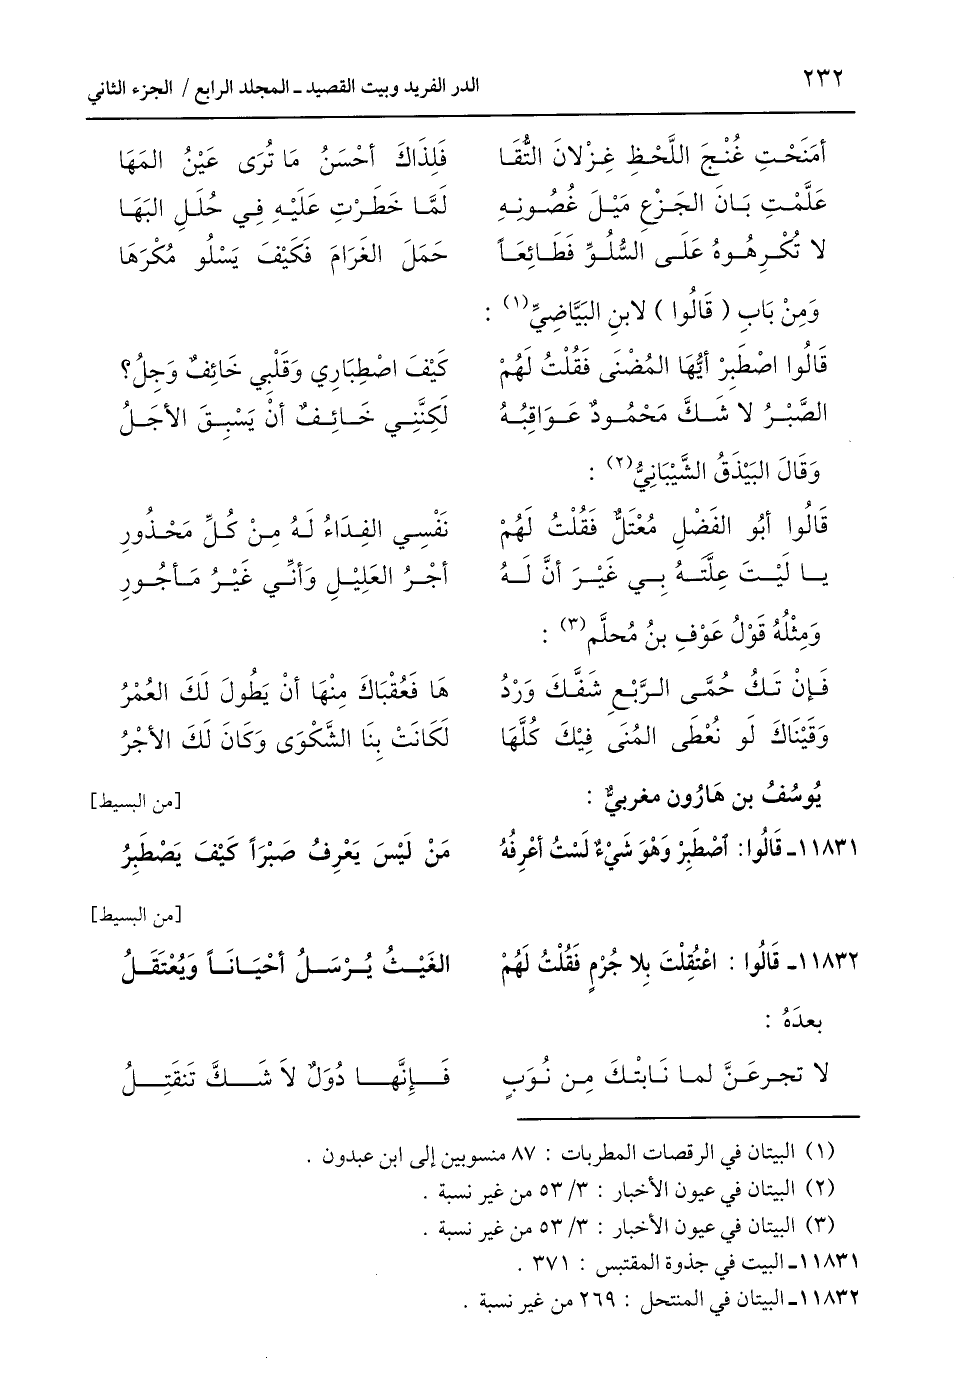 ٢٣٢ الدر الفريد وبيت القصيد ـ المجلد الرابع / الجزء الثاني
أمَنَحْتِ غُنْجَ اللَّحْظِ غِزْلانَ النُّقَا فَلِذَاكَ أحْسَنُ مَا تُرَى عَيْنُ المَهَا
عَلَّمْتِ بَانَ الجَزْعِ مَيْلَ غُصُونِهِ لَمَّا خَطَرْتِ عَلَيْهِ فِي حُلَلِ البَهَا
لا تُكْرِهُوهُ عَلَى السُّلُوِّ فَطَائِعَاً حَمَلَ الغَرَامَ فَكَيْفَ يَسْلُو مُكْرَهَا
وَمِنْ بَابِ ( قَالُوا ) لابنِ البَيَّاضِيِّ(١) :
قَالُوا اصْطَبِرْ أيُّهَا المُضْنَى فَقُلْتُ لَهُمْ كَيْفَ اصْطِبَارِي وَقَلْبِي خَائِفٌ وَجِلُ؟
الصَّبْرُ لا شَكَّ مَحْمُودٌ عَوَاقِبُهُ لَكِنَّنِي خَائِفٌ أنْ يَسْبِقَ الأجَلُ
وَقَالَ البَيْذَقُ الشَّيْبَانِيُّ(٢) :
قَالُوا أبُو الفَضْلِ مُعْتَلٌّ فَقُلْتُ لَهُمْ نَفْسِي الفِدَاءُ لَهُ مِنْ كُلِّ مَحْذُورِ
يا لَيْتَ عِلَّتَهُ بِي غَيْرَ أنَّ لَهُ أجْرُ العَلِيْلِ وَأنِّي غَيْرُ مَأجُورِ
وَمِثْلُهُ قَوْلُ عَوْفِ بنُ مُحلَّم(٣) :
فَإنْ تَكُ حُمَّى الرَّبْعِ شَفَّكَ وَرْدُ هَا فَعُقْبَاكَ مِنْهَا أنْ يَطُولَ لَكَ العُمْرُ
وَقَيْنَاكَ لَو نُعْطَى المُنَى فِيْكَ كُلَّهَا لَكَانَتْ بِنَا الشَّكْوَى وَكَانَ لَكَ الأجْرُ
يُوسُفُ بن هَارُون مغربيٌّ : [من البسيط]
١١٨٣١ـ قَالُوا: أصْطَبِرْ وَهوَ شَيْءٌ لَسْتُ أعْرِفُهُ مَنْ لَيْسَ يَعْرِفُ صَبْرَاً كَيْفَ يَصْطَبِرُ
[من البسيط]
١١٨٣٢ـ قَالُوا : اعْتُقِلْتَ بِلا جُرْمٍ فَقُلْتُ لَهُمْ الغَيْثُ يُرْسَلُ أحْيَانَاً وَيُعْتَقَلُ
بعدَهُ :
لا تجزعَنَّ لما نَابتْكَ مِن نُوَبٍ فَإنَّهَا دُوَلٌ لاَ شَكَّ تَنتَقِلُ
(١) البيتان في الرقصات المطربات : ٨٧ منسوبين إلى ابن عبدون .
(٢) البيتان في عيون الأخبار : ٣/ ٥٣ من غير نسبة .
(٣) البيتان في عيون الأخبار : ٣/ ٥٣ من غير نسبة .
١١٨٣١ـ البيت في جذوة المقتبس : ٣٧١ .
١١٨٣٢ـ البيتان في المنتحل : ٢٦٩ من غير نسبة .